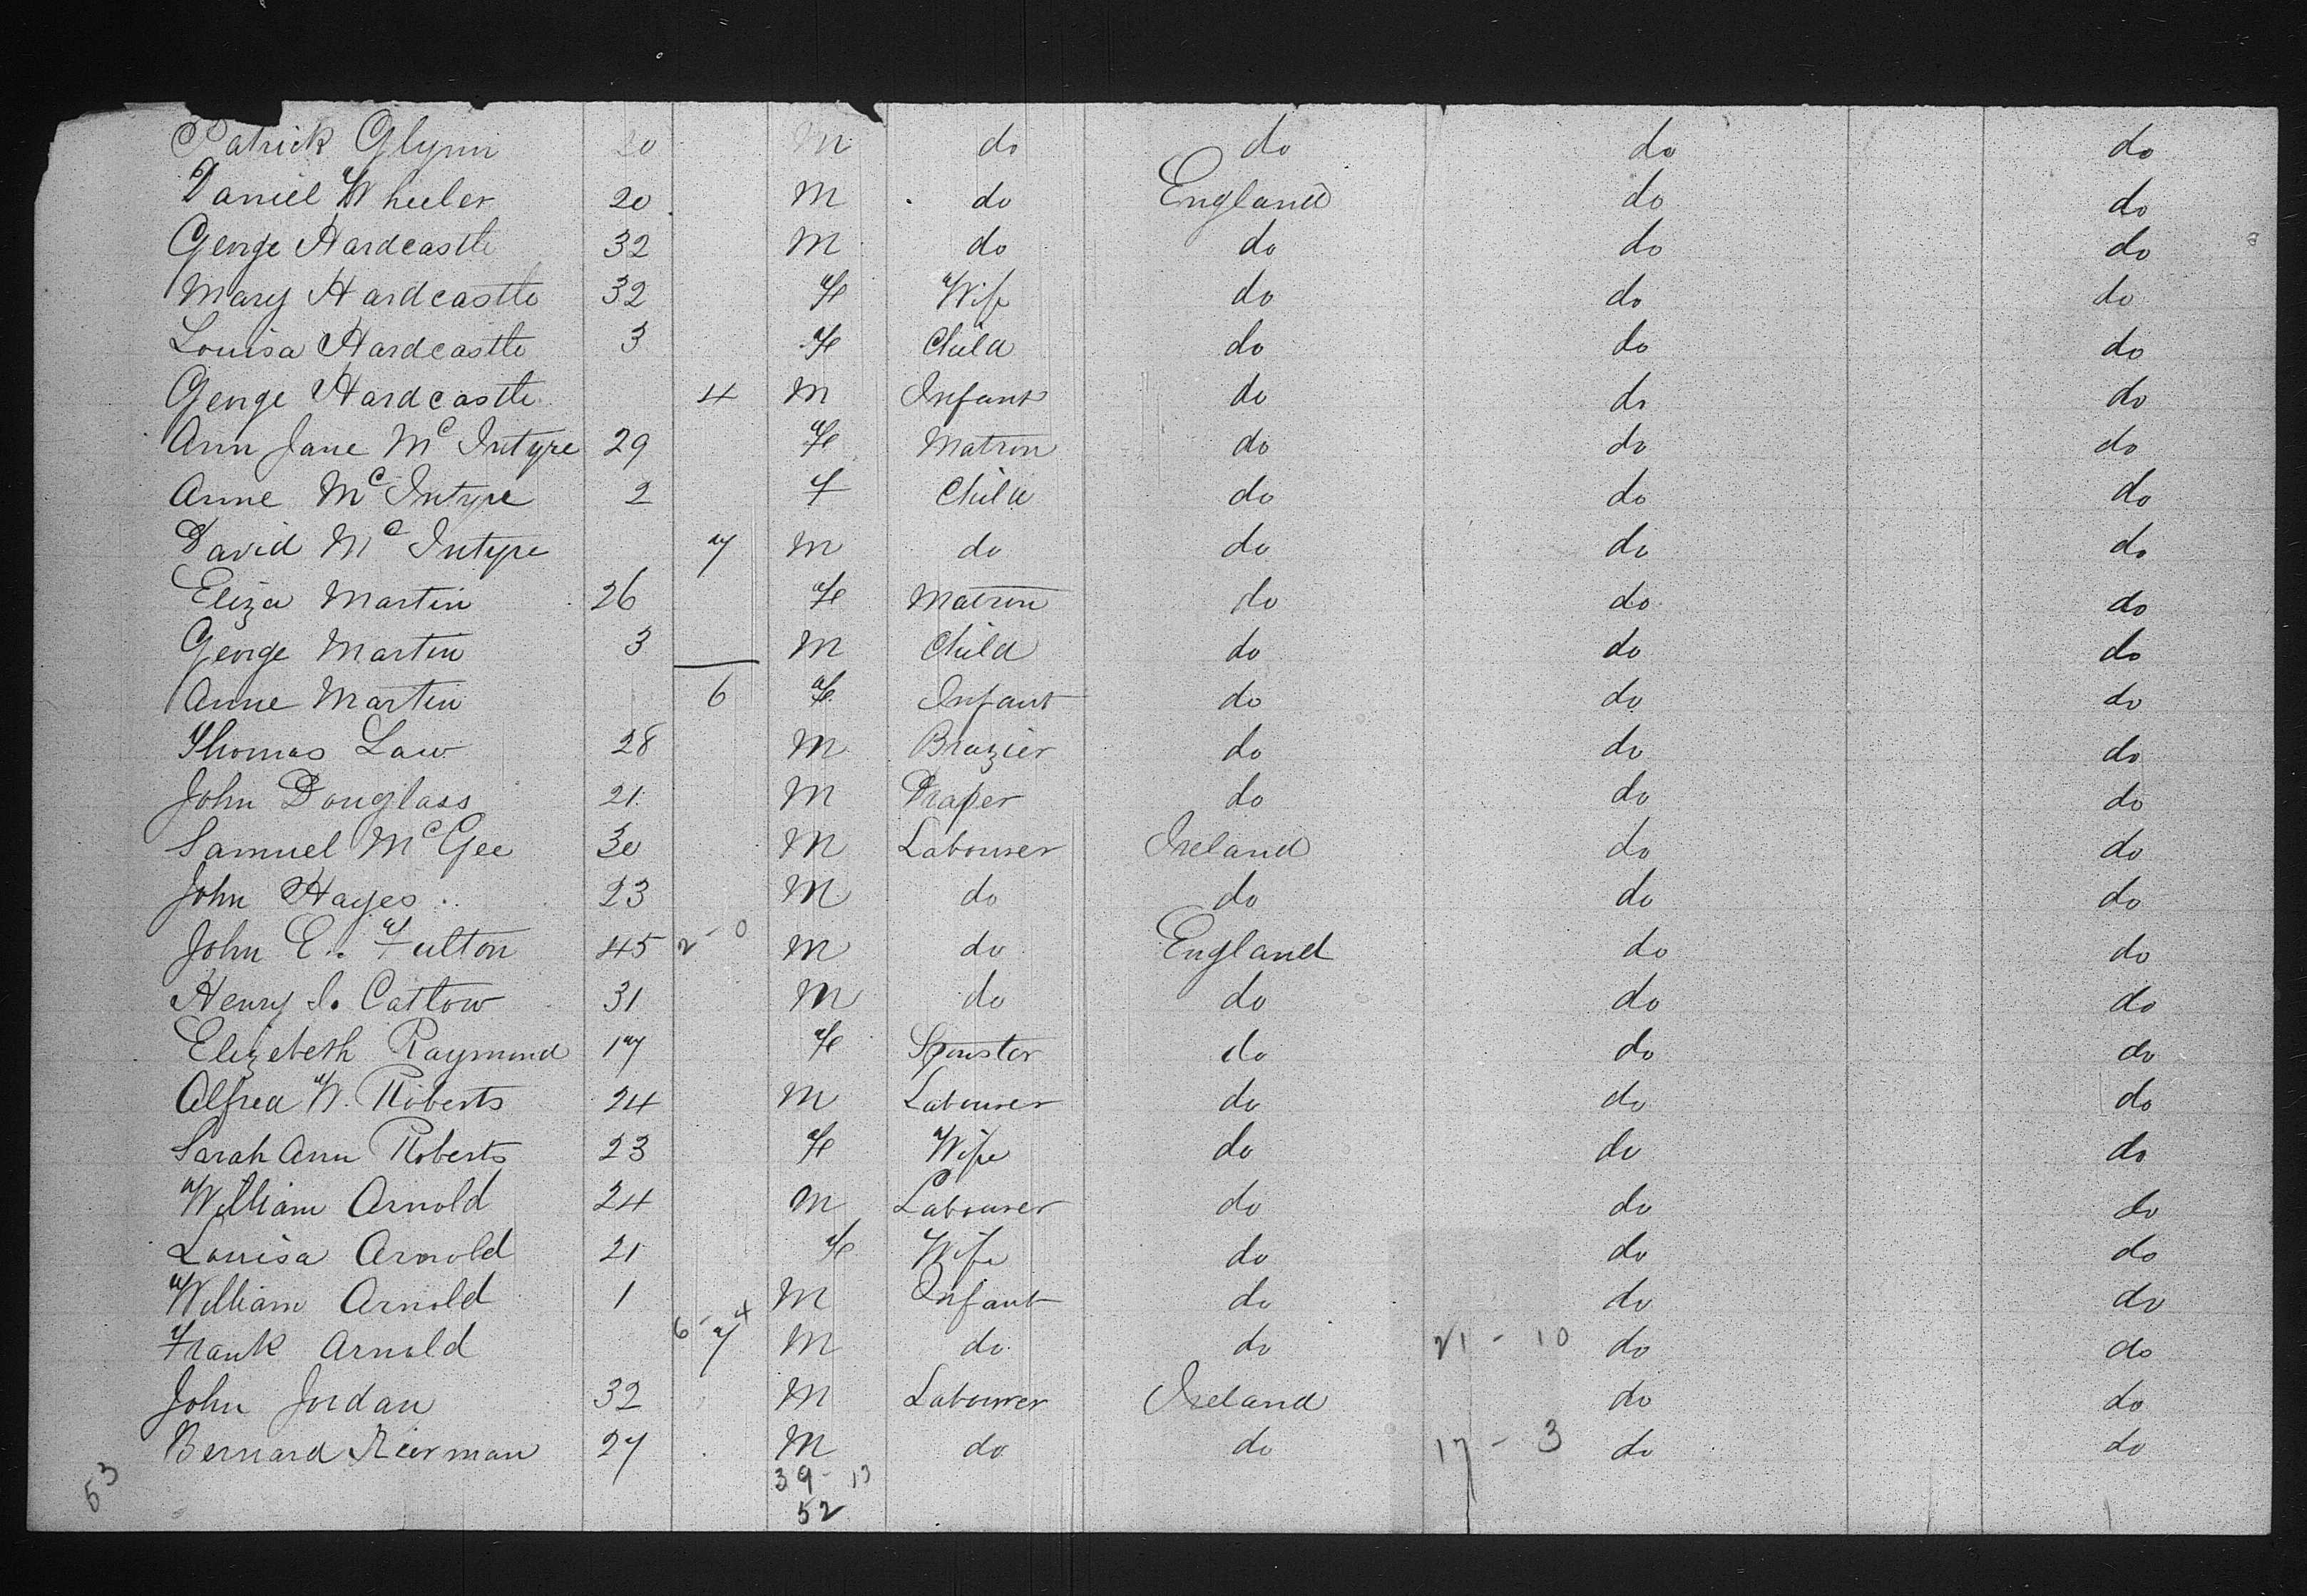 Patrick Glynn 20 M do do do do
Daniel Wheeler 20 M do England do do
George Hardcastle 32 M do do do do
Mary Hardcastle 32 Fe Wife do do do
Louisa Hardcastle 3 Fe Child do do do
George Hardcastle 4 M Infant do do do
Ann Jane McIntyre 29 Fe Matron do do do
Anne McIntyre 2 F Child do do do
David McIntyre 7 M do do do do
Eliza Martin 26 Fe Matron do do do
George Martin 3 M Child do do do
Anne Martin 6 Fe Infant do do do
Thomas Law 28 M Brazier do do do
John Douglass 21 M Draper do do do
Samuel McGee 30 M Labourer Ireland do do
John Hayes 23 M do do do do
John E. Fulton 45 2 - 0 M do England do do
Henry I. Catlow 31 M do do do do
Elizebeth Raymond 17 Fe Spinster do do do
Alfred W. Roberts 24 M Labourer do do do
Sarah Ann Roberts 23 Fe Wife do do do
William Arnold 24 M Labourer do do do
Louisa Arnold 21 Fe Wife do do do
William Arnold 1 M Infant do do do
6 - 4
Frank Arnold 7 M do do 21 - 10 do do
John Jordan 32 M Labourer Ireland do do
Bernard Kierman 27 M do do 17 - 3 do do
53 39 - 13
52